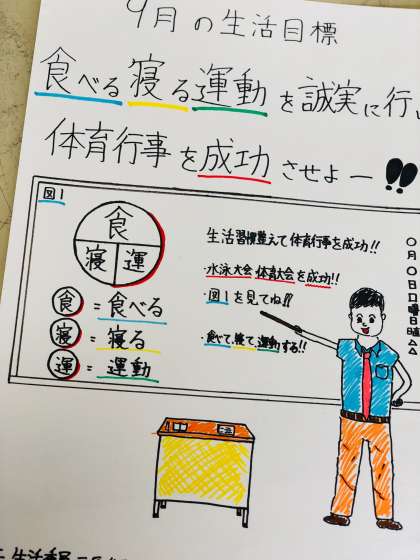 9月の生活目標
食べる寝る運動を誠実に行い
体育行事を成功させよー!!
図1
食
寝 運
食 = 食べる
寝 = 寝る
運 = 運動
生活習慣整えて体育行事を成功!!
・水泳大会、体育大会を成功!!
・図1を見てね!!
・食べて、寝て、運動する!!
〇月〇日〇曜日
生活委員